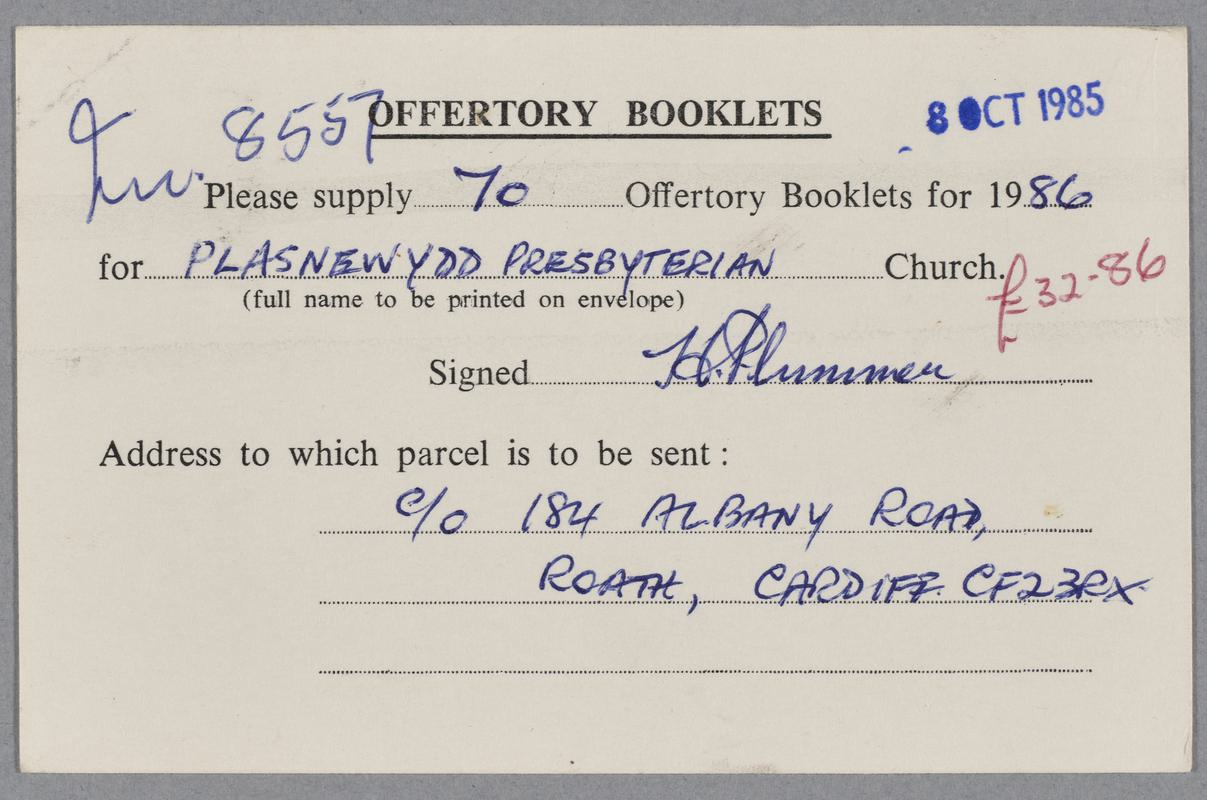 Inv. 8557 OFFERTORY BOOKLETS 8 OCT 1985
Please supply 70 Offertory Booklets for 1986
for PLASNEWYDD PRESBYTERIAN Church. £32-86
(full name to be printed on envelope)
Signed H. Plummer
Address to which parcel is to be sent :
c/o 184 ALBANY ROAD,
ROATH, CARDIFF. CF2 3RX